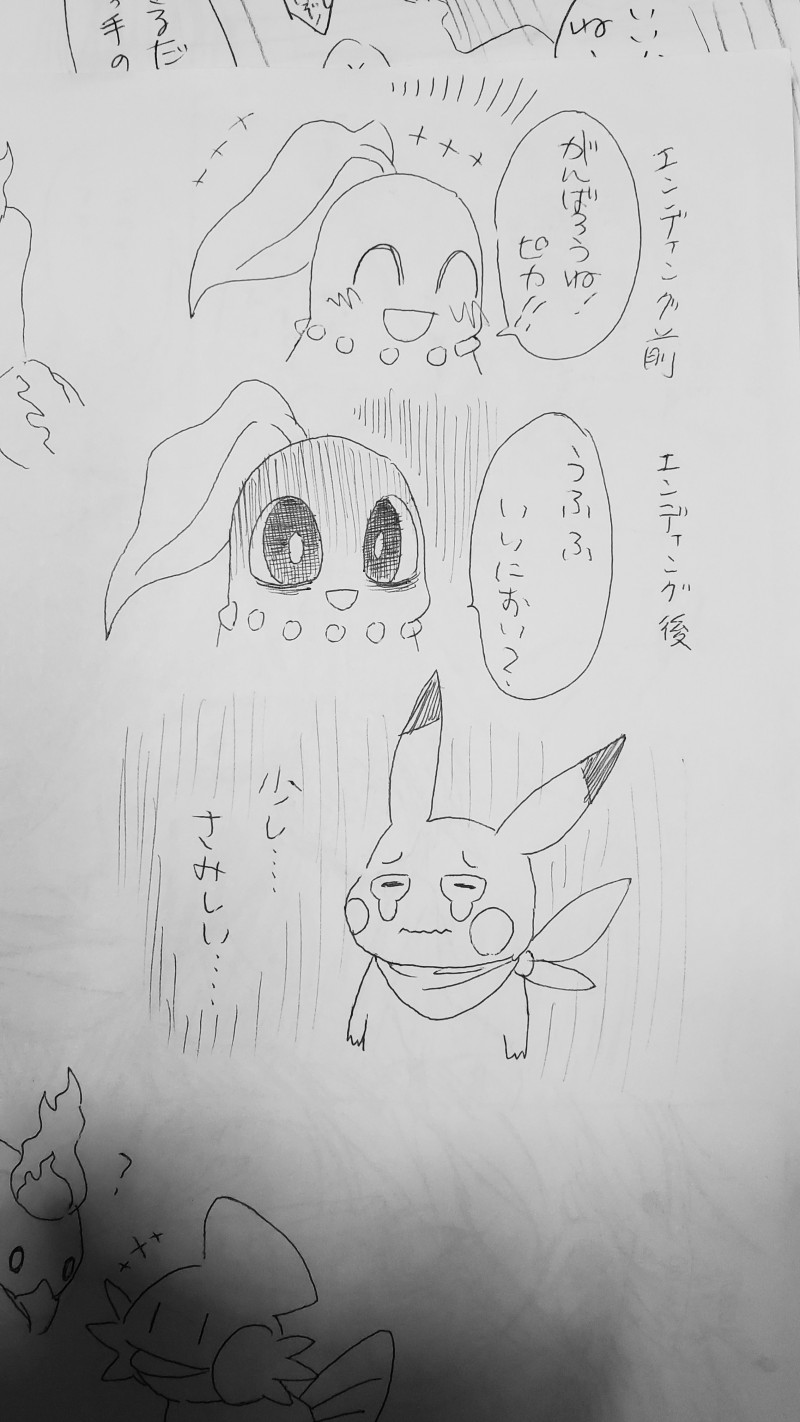 いい
ね、
きるだ
っ手の
エンディング前
がんばろうね!
ピカ!!
エンディング後
うふふ
いいにおい?
少し……
さみしい……
?